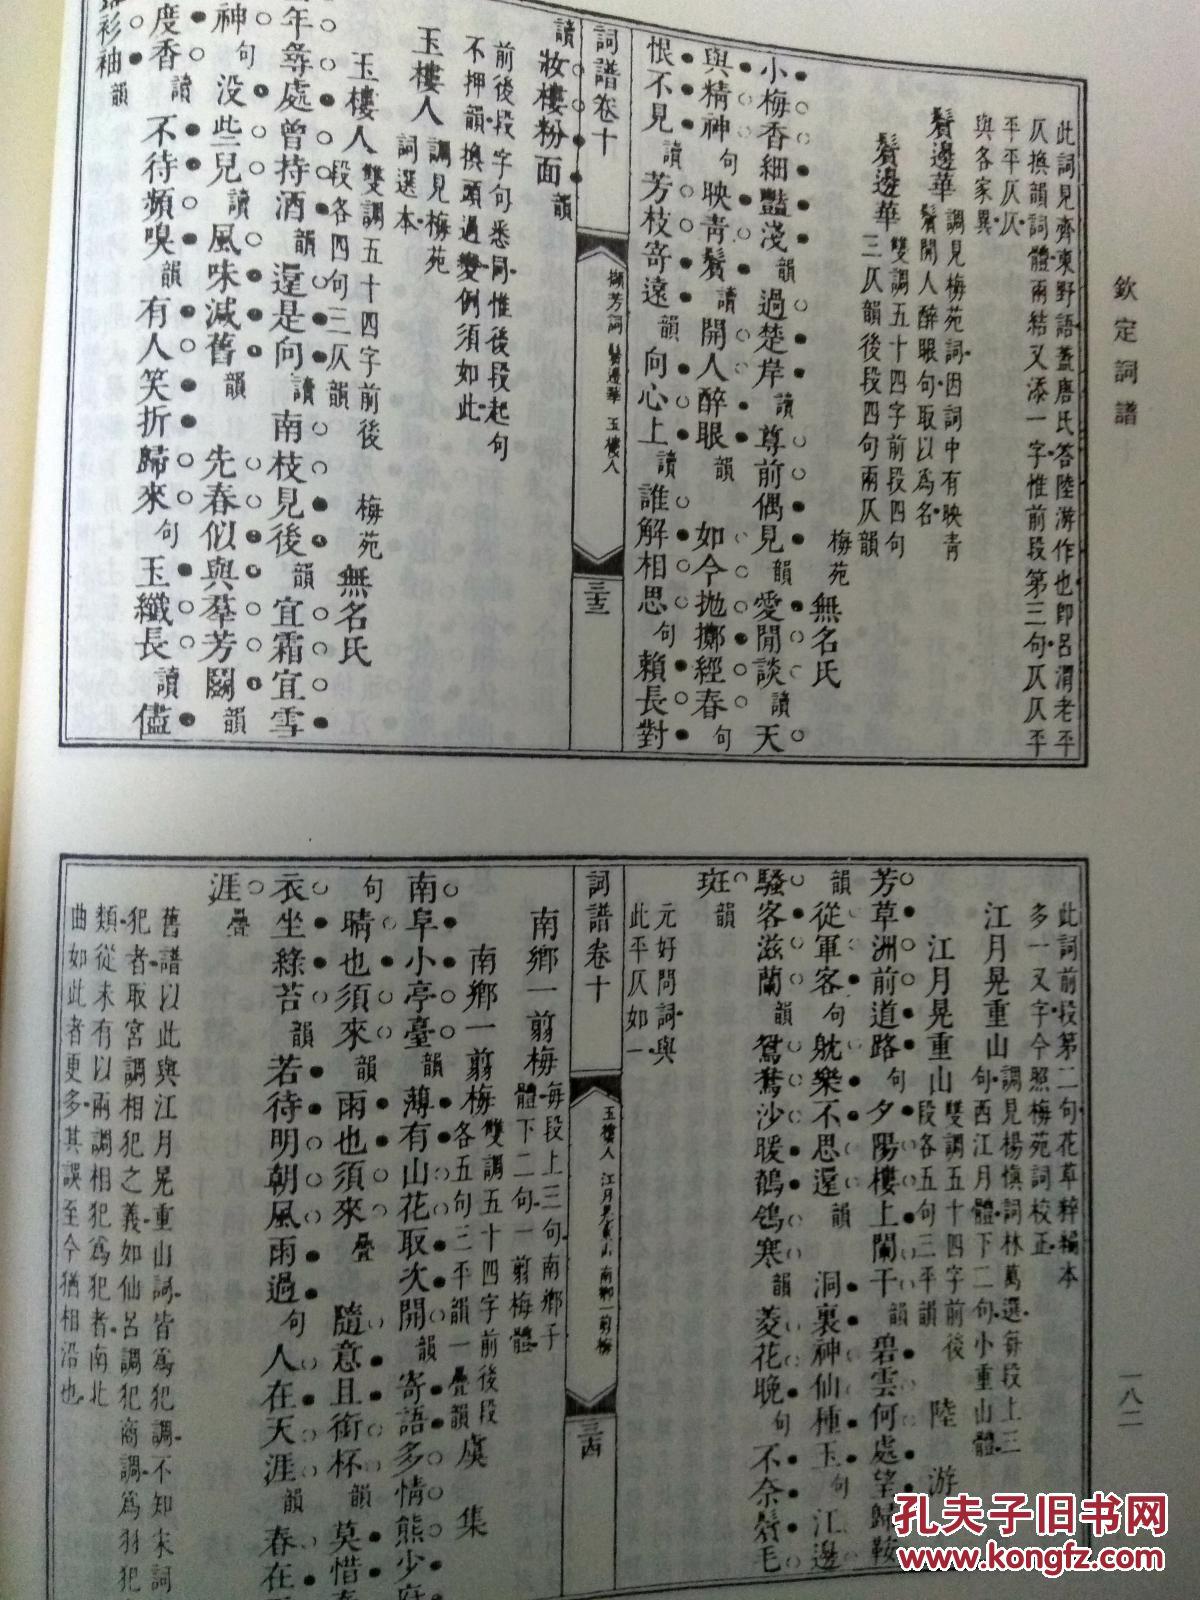 欽定詞譜
此詞見齊東野語蓋唐氏答陸游作也即呂渭老平
仄換韻詞體兩結又添一字惟前段第三句仄仄平
平平仄仄
與各家異
鬢邊華調見梅苑詞因詞中有映青
鬢開人醉眼句取以為名
鬢邊華雙調五十四字前段四句
三仄韻後段四句兩仄韻
梅苑無名氏
小梅香細豔淺韻過楚岸讀尊前偶見韻愛閒談讀天
與精神句映青鬢讀開人醉眼韻如今拋擲經春句
恨不見讀芳枝寄遠韻向心上讀誰解相思句賴長對
詞譜卷十
擷芳詞 鬢邊華 玉樓人
三十三
讀妝樓粉面韻
前後段字句悉同惟後段起句
不押韻換頭過變例須如此
玉樓人調見梅苑
詞選本
玉樓人雙調五十四字前後
段各四句三仄韻
梅苑無名氏
年尋處曾持酒韻還是向讀南枝見後韻宜霜宜雪
神句没些兒讀風味減舊韻先春似與羣芳鬬韻
度香讀不待頻嗅韻有人笑折歸來句玉纖長讀儘
衫袖韻
此詞前段第二句花草粹編本
多一又字今照梅苑詞校正
江月晃重山調見楊慎詞林萬選每段上三
句西江月體下二句小重山體
江月晃重山雙調五十四字前後
段各五句三平韻
陸游
芳草洲前道路句夕陽樓上闌干韻碧雲何處望歸鞍
韻從軍客句躭樂不思還韻洞裏神仙種玉句江邊
騷客滋蘭韻鴛鴦沙暖鶺鴒寒韻菱花晚句不奈鬢毛
斑韻
元好問詞與
此平仄如一
詞譜卷十
玉樓人 江月晃重山 南鄉一剪梅
三十四
南鄉一翦梅每段上三句南鄉子
體下二句一翦梅體
南鄉一翦梅雙調五十四字前後段
各五句三平韻一疊韻
虞集
南阜小亭臺韻薄有山花取次開韻寄語多情熊少府
句晴也須來韻雨也須來疊隨意且銜杯韻莫惜春
衣坐綠苔韻若待明朝風雨過句人在天涯韻春在天
涯疊
舊譜以此與江月晃重山詞皆為犯調不知宋詞
犯者取宮調相犯之義如仙呂調犯商調為羽犯
類從未有以兩調相犯為犯者南北
曲如此者更多其誤至今猶相沿也
一八二
孔夫子旧书网
www.kongfz.com